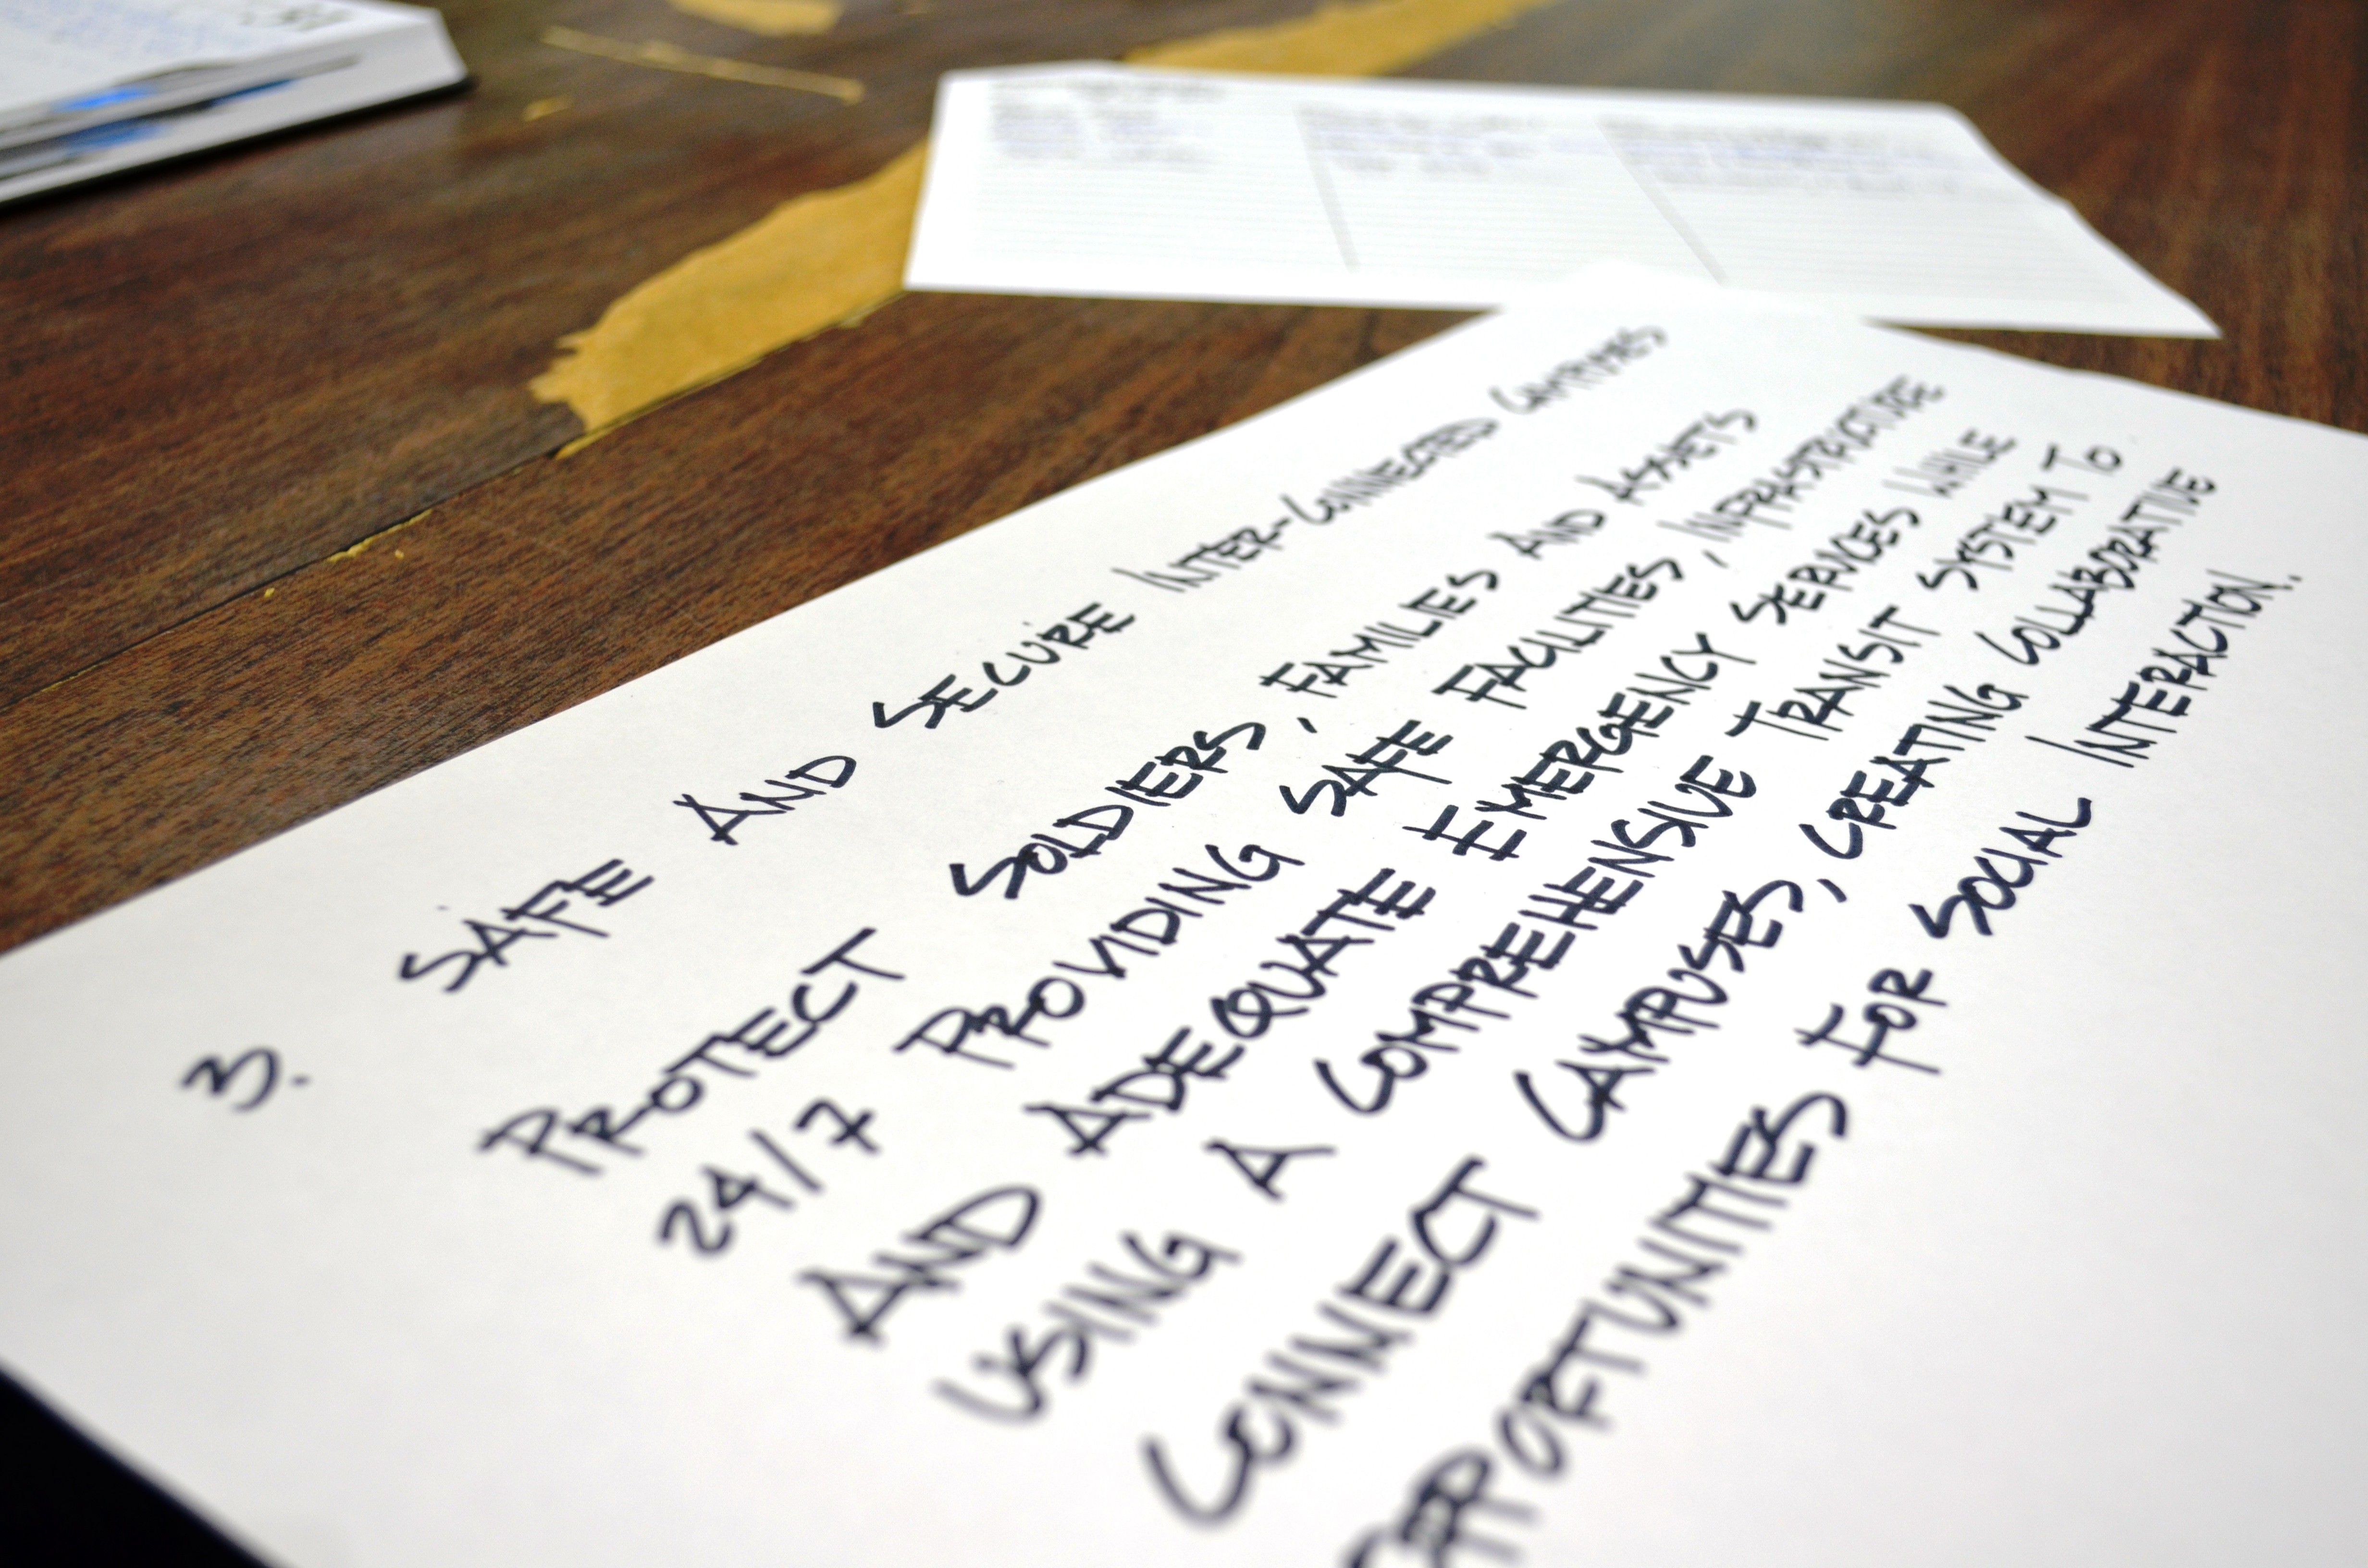 3. SAFE AND SECURE INTER-CONNECTED CAMPUSES
PROTECT SOLDIERS, FAMILIES AND ASSETS
24/7 PROVIDING SAFE FACILITIES, INFRASTRUCTURE
AND ADEQUATE EMERGENCY SERVICES WHILE
USING A COMPREHENSIVE TRANSIT SYSTEM TO
CONNECT CAMPUSES, CREATING COLLABORATIVE
OPPORTUNITIES FOR SOCIAL INTERACTION.